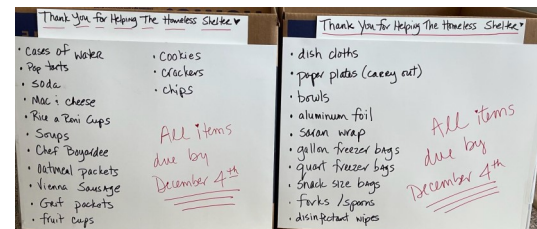 Thank You for Helping The Homeless Shelter ♥
• Cases of Water
• Pop tarts
• soda
• Mac & cheese
• Rice a Roni Cups
• Soups
• Chef Boyardee
• Oatmeal packets
• Vienna Sausage
• Grit packets
• fruit cups
• Cookies
• Crackers
• Chips
All items
due by
December 4th
Thank You for Helping The Homeless Shelter ♥
• dish cloths
• paper plates (carry out)
• bowls
• aluminum foil
• saran wrap
• gallon freezer bags
• quart freezer bags
• Snack size bags
• forks / spoons
• disinfectant wipes
All items
due by
December 4th